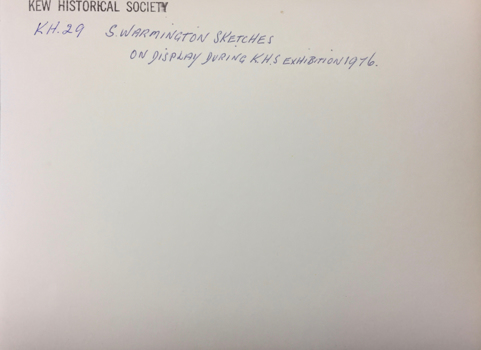 KEW HISTORICAL SOCIETY
KH.29 S.WARMINGTON SKETCHES
ON DISPLAY DURING K.H.S EXHIBITION 1976.